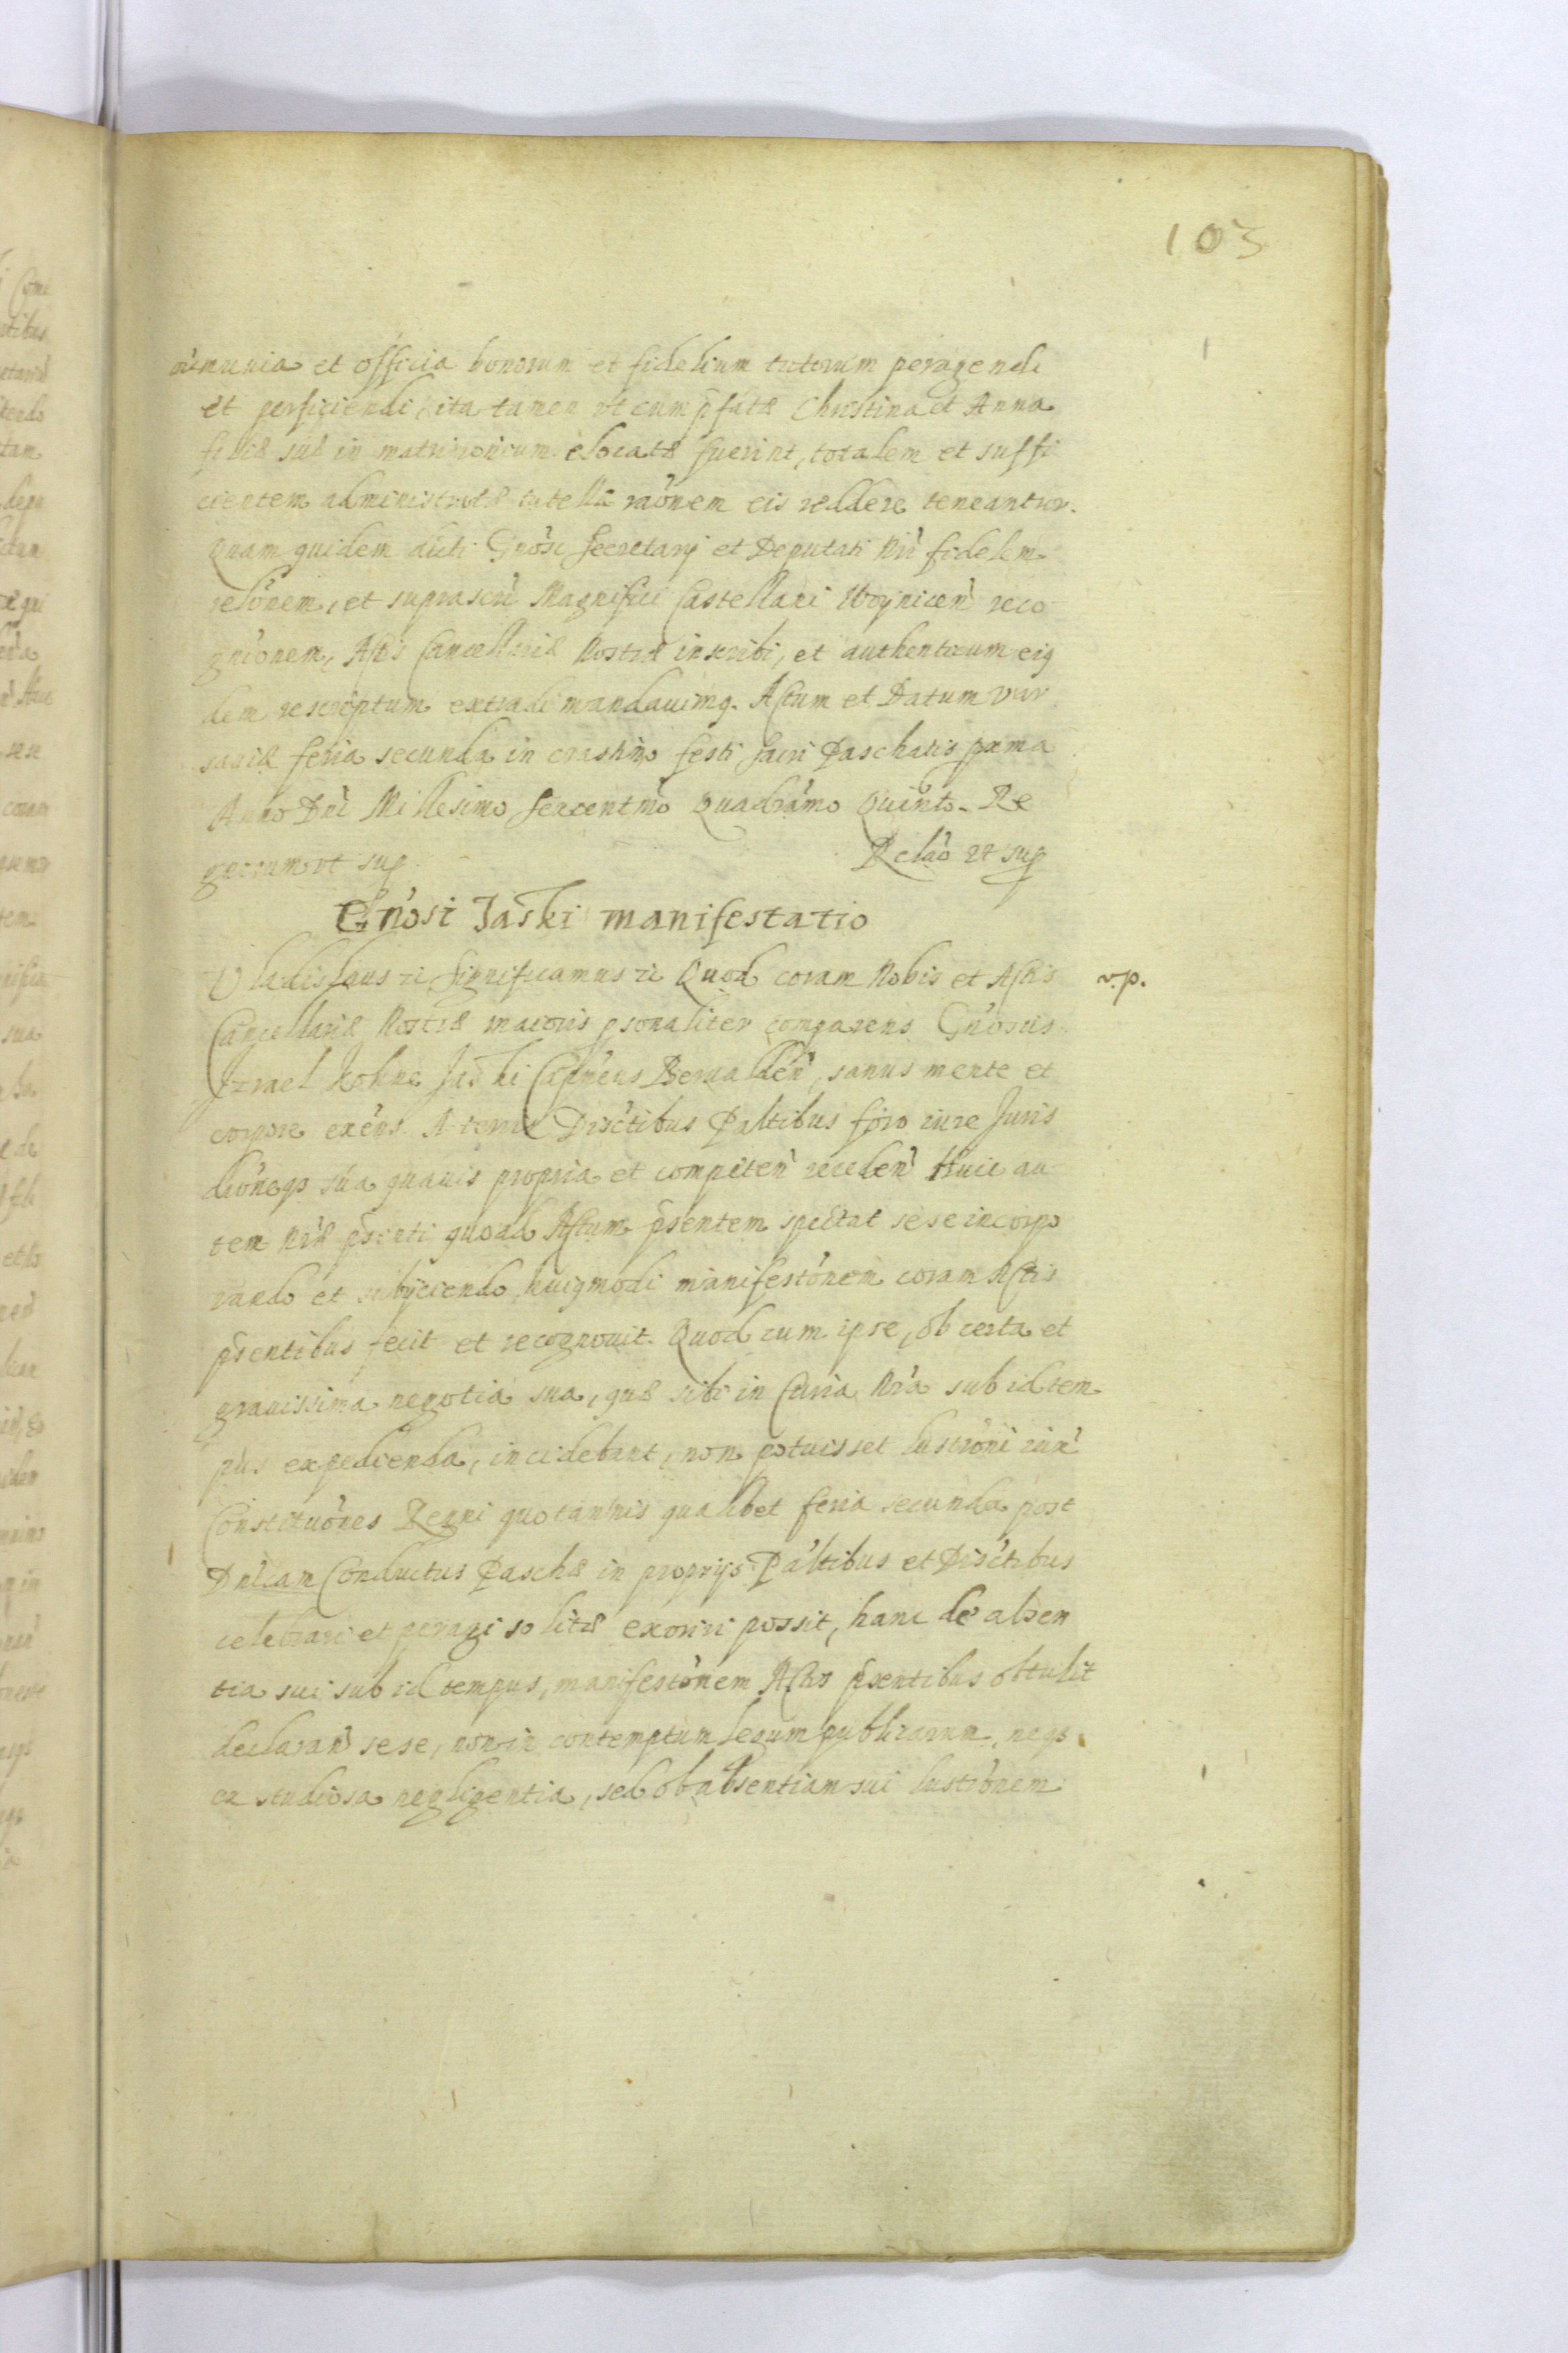 103
oia munia et officia bonorum et fidelium tutorum peragendi
et perficiendi, ita tamen ut cum p̄fatæ Christina et Anna
filiæ suæ in matrimonium elocatæ fuerint, totalem et suffi
cientem administratæ tutellæ raōnem eis reddere teneantur.
Quam quidem dicti Gnōsi Secretarij et Deputati Nrī fidelem
relōnem, et suprascrī Magnifici Castellani Woynicen̄ reco
gnīonem, Actis Cancellariæ Nostræ inscribi, et authenticum eius
dem rescriptum extradi mandauimus. Actum et Datum Var
sauiæ feria secunda in crastino festi Sacri Paschatis proxima
Anno Dnī Millesimo Sexcentmō Quadrāmo Quinto. Re
gnorum ut sup Relāo ut sup
Gnōsi Jaski manifestatio
Vladislaus etc Significamus etc Quod coram Nobis et Actis v.p.
Cancellariæ Nostræ maioris psonaliter comparens Gnōsus
Izrael Kohne Jaski Capnēus Bervalden̄, sanus mente et
corpore exēns. A terris Disc̄tibus Paltibus foro iure Juris
diōneqз sua quauis propria et competen̄ receden̄ Huic au
tem Nrǣ pn̄ti quoad Actum p̄sentem spectat sese incorpo
rando et subijciendo, huiusmodi manifestōnem coram Actis
p̄sentibus fecit et recognouit. Quod cum ipse, ob certa et
grauissima negotia sua, quæ sibi in Curia Nrā sub id tem
pus expedienda, incidebant, non potuisset lustrōni iux̄
Constituōnes Regni quotannis qualibet feria secunda post
Dnīcam Conductus Paschæ in proprijs Pāltibus et Disc̄tibus
celebrari et peragi solitæ exoriri possit, hanc de absen
tia sui sub id tempus, manifestōnem Actis p̄sentibus obtulit
declaran̄ sese, non in contemptum legum publicarum, neqз
ex studiosa negligentia, sed ob absentiam sui lustrōnem